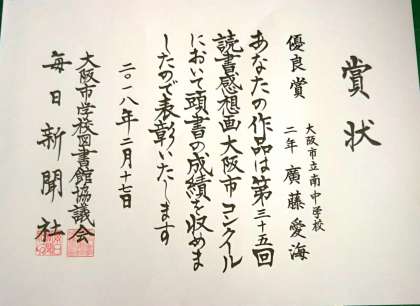 賞状
優良賞
大阪市立南中学校
二年 廣藤愛海
あなたの作品は第三十五回
読書感想画大阪市コンクール
において頭書の成績を収めま
したので表彰いたします
二〇一八年二月十七日
大阪市学校図書館協議会
毎日新聞社